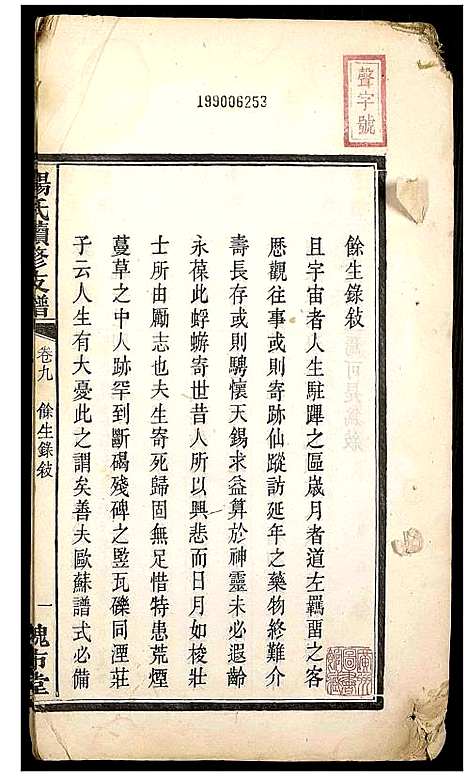 聲字號
199006253
餘生錄敍
且宇宙者人生駐蹕之區歲月者道左羈畱之客
厯觀往事或則寄跡仙蹤訪延年之藥物終難介
壽長存或則騁懷天錫求益算於神靈未必遐齡
永葆此蜉蝣寄世昔人所以興悲而日月如梭壯
士所由勵志也夫生寄死歸固無足惜特患荒煙
蔓草之中人跡罕到斷碣殘碑之竪瓦礫同湮莊
子云人生有大憂此之謂矣善夫歐蘇譜式必備
楊氏續修支譜
卷九
餘生錄敍
一
槐市堂